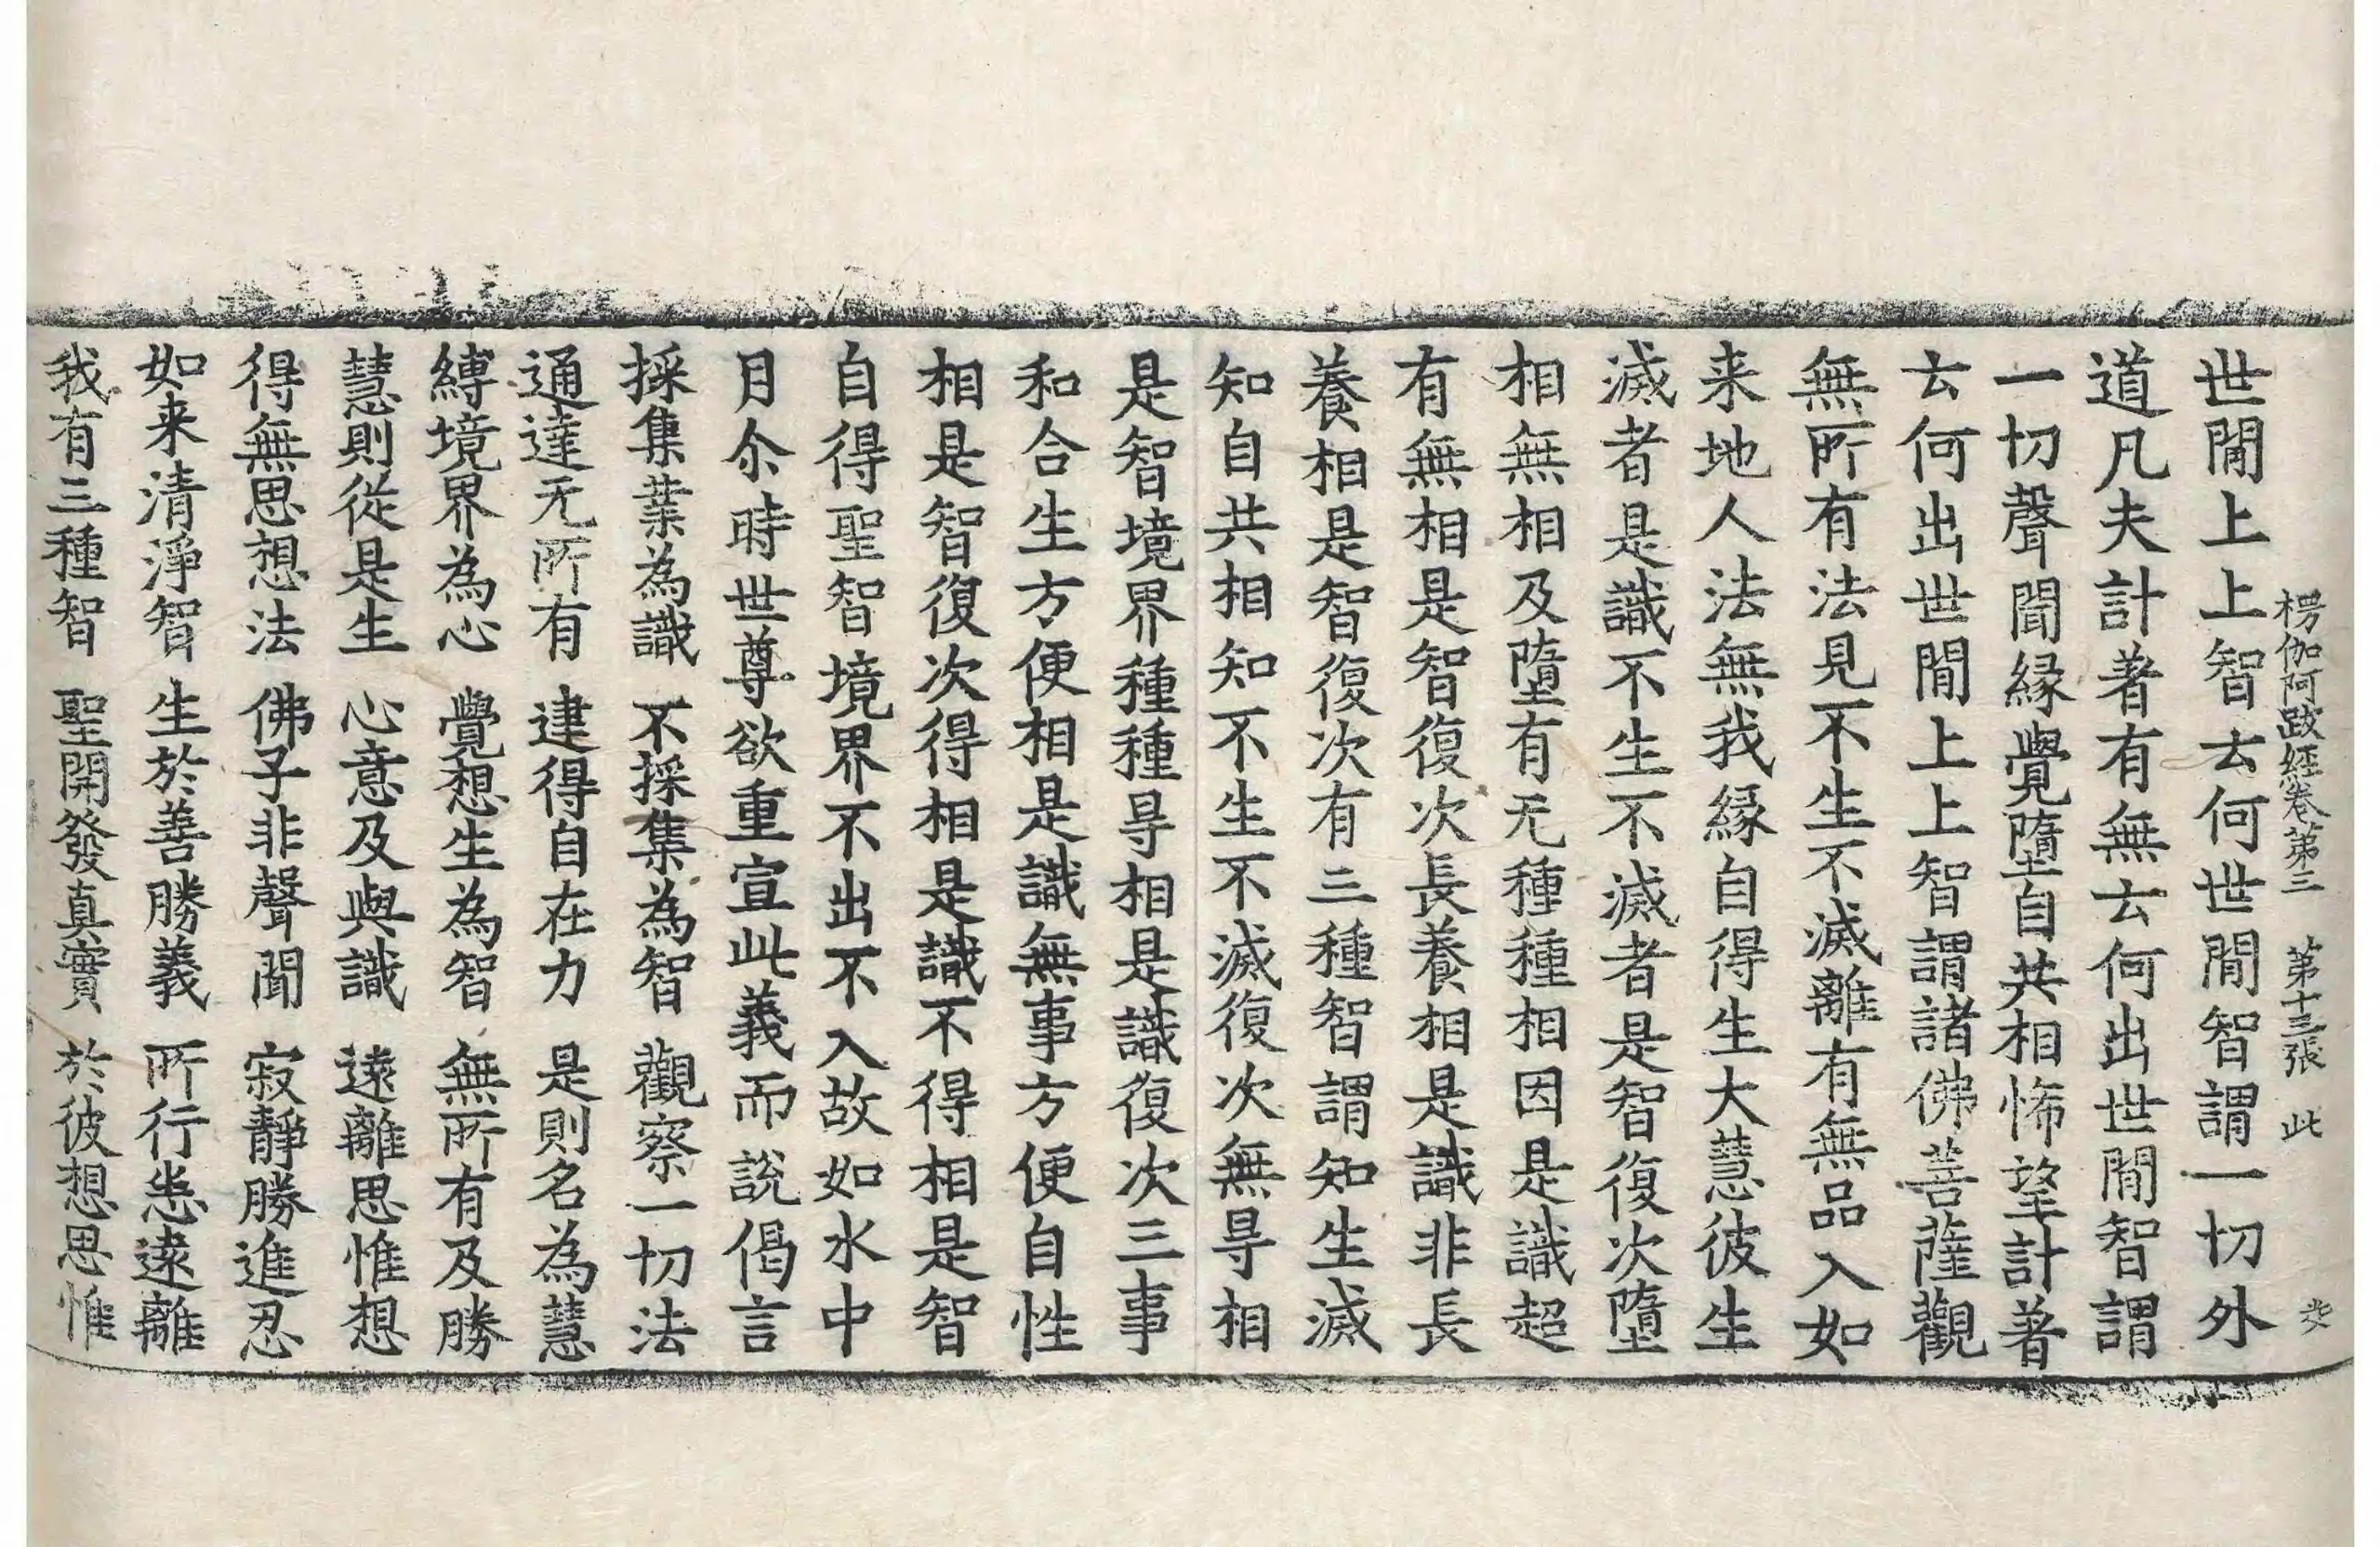 楞伽阿跋經卷第三 第十三張 此
世間上上智云何世間智謂一切外
道凡夫計著有無云何出世間智謂
一切聲聞緣覺墮自共相悕望計著
云何出世間上上智謂諸佛菩薩觀
無所有法見不生不滅離有無品入如
来地人法無我緣自得生大慧彼生
滅者是識不生不滅者是智復次墮
相無相及墮有无種種相因是識超
有無相是智復次長養相是識非長
養相是智復次有三種智謂知生滅
知自共相知不生不滅復次無㝵相
是智境界種種㝵相是識復次三事
和合生方便相是識無事方便自性
相是智復次得相是識不得相是智
自得聖智境界不出不入故如水中
月尒時世尊欲重宣此義而說偈言
採集業為識 不採集為智 觀察一切法
通達无所有 逮得自在力 是則名為慧
縛境界為心 覺想生為智 無所有及勝
慧則從是生 心意及與識 遠離思惟想
得無思想法 佛子非聲聞 寂靜勝進忍
如来清淨智 生於善勝義 所行悉遠離
我有三種智 聖開發真實 於彼想思惟